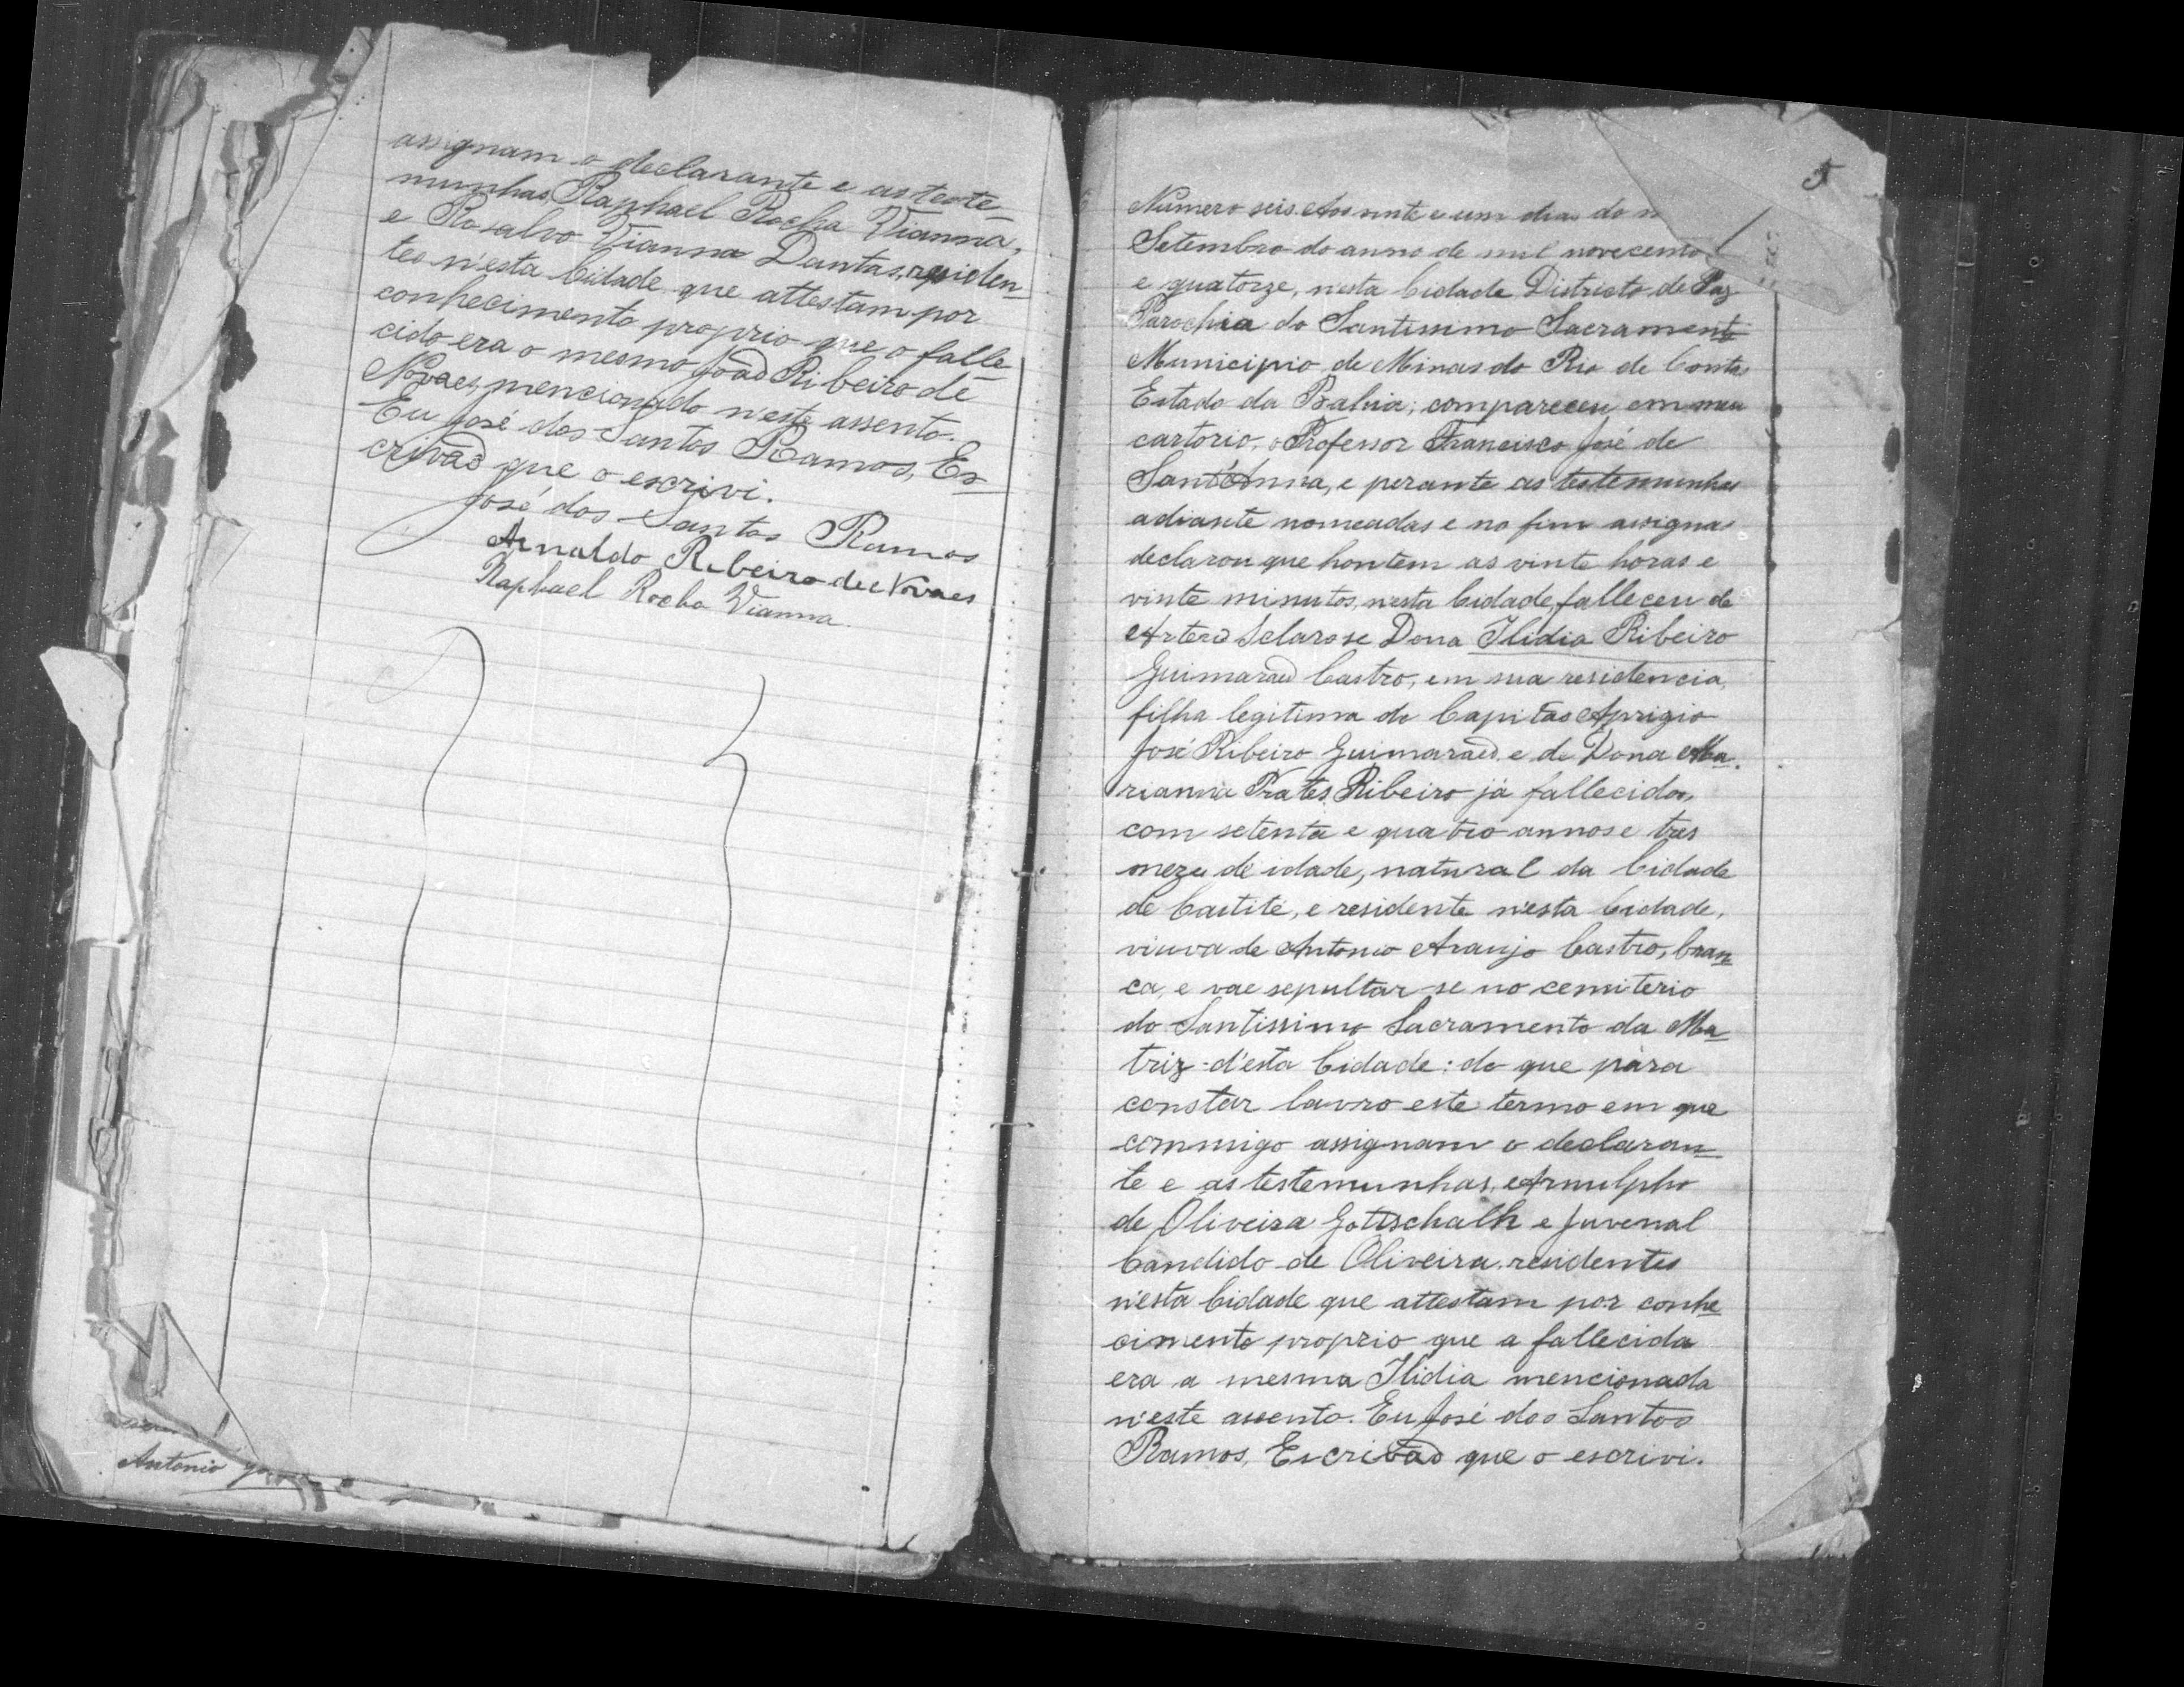 assignam o declarante e as teste-
munhas, Raphael Rocha Vianna,
e Rosalvo Vianna Dantas, residen-
tes n'esta Cidade que attestam por
conhecimento proprio que o falle-
cido era o mesmo João Ribeiro de
Novaes, mencionado n'este assento.
Eu José dos Santos Ramos, Es-
crivão que o escrivi.
José dos Santos Ramos
Arnaldo Ribeiro de Novaes
Raphael Rocha Vianna.
Antonio
5
Numero seis. Aos vinte e um dias do
Setembro do anno de mil novecento
e quatorze, nesta Cidade Districto de Paz
Parochia do Santissimo Sacrament
Municipio de Minas do Rio de Conta
Estado da Bahia; compareceu em meu
cartorio, o Professor Francisco José de
Sant'Anna, e perante as testemunhas
adiante nomeadas e no fim assigna
declarou que hontem as vinte horas e
vinte minutos, nesta Cidade, falleceu de
Arterio Sclarose Dona Ilidia Ribeiro
Guimarães Castro, em sua residencia,
filha legitima do Capitão Aprigio
José Ribeiro Guimarães e de Dona Ma-
rianna Prates Ribeiro já fallecidos,
com setenta e quatro annos e tres
mezes de idade, natural da Cidade
de Caetité, e residente n'esta Cidade,
viuva de Antonio Araujo Castro, bran-
ca, e vae sepultar-se no cemiterio
do Santissimo Sacramento da Ma-
triz d'esta Cidade: do que para
constar lavro este termo em que
commigo assignam o declaran-
te e as testemunhas, Arnulpho
de Oliveira Gottschalk e Juvenal
Candido de Oliveira, residentes
n'esta Cidade que attestam por conhe-
cimento proprio que a fallecida
era a mesma Ilidia mencionada
n'este assento. Eu José dos Santos
Ramos, Escrivão que o escrivi.